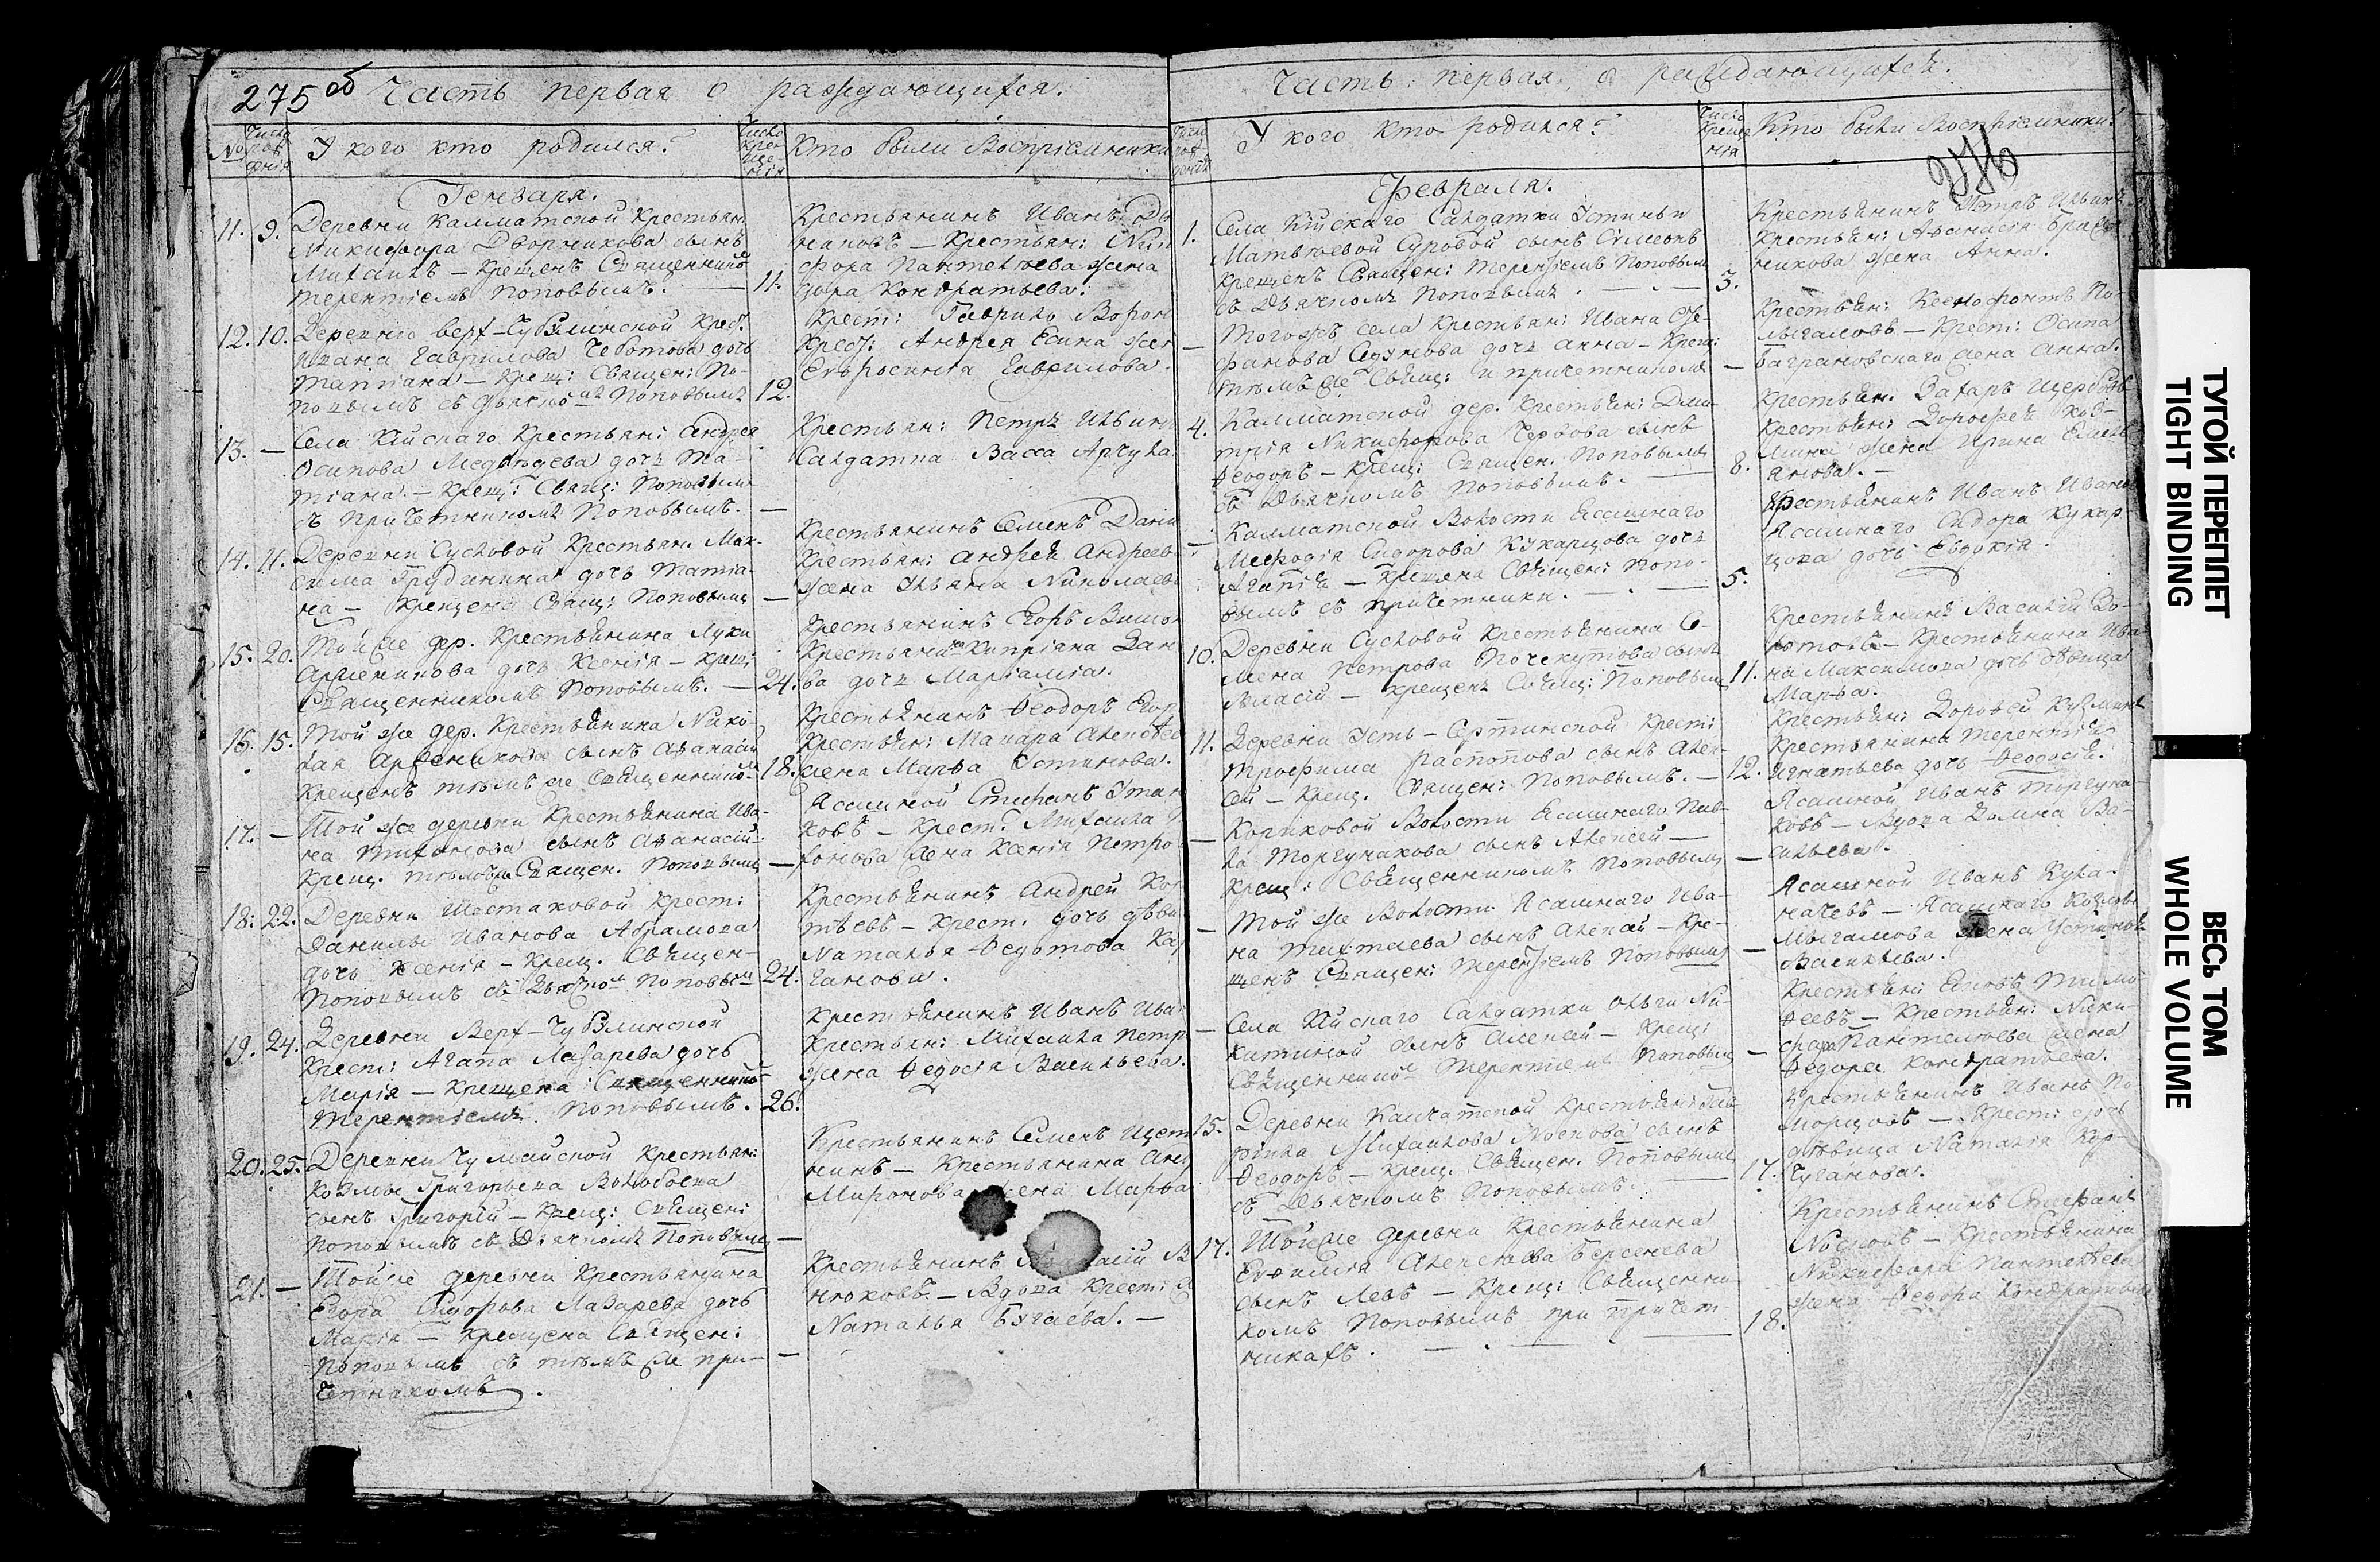 275 об Часть первая о раждающихся.
№
Число рождения
У кого кто родился?
Число крещения
Кто были Воспріемники
Генваря.
11. 9. Деревни Калматской Крестьян:
Никифора Дворникова сынъ
Михаилъ — Крещенъ Священнико
Терентіемъ Поповымъ. — 11.
Крестьянинъ Иванъ
— Крестьян:
Пантелѣева жена
дора Кондратьева.
12. 10. Деревни Верх-Чублинской Крест:
Ивана Гаврилова Чеботова дочь
Татіана — Крещ: Священ: По-
повымъ съ Дьячкомъ Поповымъ 12.
Крест: Гаврило Ворон
Крест: Андрея Есина жен
Евфросинія Гаврилова.
13. — Села Кійскаго Крестьян: Андрея
Осипова Медвѣдева дочь Та-
тіана. — Крещ: Свящ: Поповымъ
съ Причетникомъ Поповымъ. —
Крестьян: Петръ Ильин
Салдатка Васса
14. 11. Деревни Сусловой Крестьян: Мак-
сима Грудинина дочь Татіа-
на — Крещена Свящ: Поповымъ —
Крестьянинъ Семенъ Дани
Крестьян: Андрей Андреев
жена Ульяна Николаев
15. 20. Тойже дер. Крестьянина Луки
дочь Ксенія — Крещ:
Священникомъ Поповымъ. — 24.
Крестьянинъ Егоръ
Крестьянина Кипріана Дан
ва дочь Маріамія.
16. 15. Той же дер. Крестьянина Нико-
лая сынъ Афанасій
Крещенъ тѣмъ же Священнико 18.
Крестьянинъ Ѳеодоръ Егор
Крестьян: Макара Алексѣев
жена Марѳа Устинова.
17. — Той же деревни Крестьянина Ива-
на Тихонова сынъ Афанасій
Крещ. тѣмъ же Священ. Поповымъ —
Ясашной Стефанъ
ковъ — Крест: Михаила
хонова жена Ксенія Петро
18. 22. Деревни Шестаковой Крест:
Данилы Иванова Абрамова
дочь Ксенія — Крещ. Священ-
Поповымъ съ Дьячкомъ Поповымъ 24.
Крестьянинъ Андрей
тѣевъ — Крест. дочь дѣви
Наталья Ѳедотова
ганова.
19. 24. Деревни Верх-Чублинской
Крест: Агапа Лазарева дочь
Марія — Крещена Священнико
Терентіемъ Поповымъ. 26.
Крестьянинъ Иванъ Иван
Крестьян: Михаила Петр
жена Ѳедосья Васильева.
20. 25. Деревни Чумайской Крестьян:
Козмы Григорьева Воробьева
сынъ Григорій — Крещ: Священ:
Поповымъ съ Дьячкомъ Поповымъ —
Крестьянинъ Семенъ Щет
нинъ — Крестьянина
Миронова жена Марѳа
21. — Тойже деревни Крестьянина
Сидорова Лазарева дочь
Марія — Крещена Священ:
Поповымъ съ тѣмъ же при-
четникомъ.
Крестьянинъ
нюковъ. — Вдова Крест:
Наталья Бугаева. —
Часть первая, о раждающихся.
У кого кто родился?
Число Крещения
Кто были Воспріемники?
276
Февраля.
1. Села Кійскаго Салдатки Устиньи
Матвѣевой Суровой сынъ Сѵмеонъ
Крещенъ Священ: Терентіемъ Поповымъ
съ Дьячкомъ Поповымъ. — 3.
Крестьянинъ Петръ Ильинъ
Крестьян: Афанасія
никова жена Анна.
— Тогожъ села Крестьян: Ивана Сте-
фанова дочь Анна — Крещ:
тѣмъ же Свящ: и причетникомъ —
Крестьян: Ксенофонтъ По-
лыгаловъ — Крест: Осипа
Баграновскаго жена Анна.
4. Калматской дер. Крестьян: Дми-
трія Никифорова сынъ
Ѳеодоръ — Крещ: Священ. Поповымъ
съ Дьячкомъ Поповымъ. — 8.
Крестьян: Захаръ
Крестьян: Дорофея Куз-
мина жена Ирина Емель-
янова. —
— Калматской Волости Ясашнаго
Меѳодія Сидорова Кукарцова дочь
Агапія — Крещена Священ: Попо-
вымъ съ Причетники. — 5.
Крестьянинъ Иванъ Иванов
Ясашнаго Сидора Кукар-
цова дочь Евдокія.
10. Деревни Сусловой Крестьянина Се-
мена Петрова Почекутова сынъ
Власій — Крещенъ Свящ: Поповымъ 11.
Крестьянинъ Василій
— Крестьянина Ива-
на Максимова дочь дѣвица
Марѳа.
11. Деревни Усть-Сертинской Крест:
Трофима Распопова сынъ Алек-
сей — Крещ. Священ: Поповымъ. — 12.
Крестьян: Дорофей Кузминъ
Крестьянина Терентія
Игнатьева дочь Ѳеодосія.
— Волости Ясашнаго Пав-
ла Торгунакова сынъ Алексей —
Крещ: Священникомъ Поповымъ —
Ясашной Иванъ Торгуна-
ковъ — Вдова Домна Ва-
сильева.
— Той же Волости Ясашнаго Ива-
на сынъ Алексей — Кре-
щенъ Священ: Терентіемъ Поповымъ —
Ясашной Иванъ
— Ясашнаго Козмы
жена Устинья
Васильева.
— Села Кійскаго Салдатки Ольги Ни-
китиной сынъ Алексей — Крещ:
Священнико Терентіемъ Поповымъ —
Крестьян: Тимо-
ѳеевъ — Крестьян: Ники-
фора Пантелѣева жена
Ѳедора Кондратьева.
15. Деревни Калматской Крестьян: Гав-
рила Михайлова Носкова сынъ
Ѳеодоръ — Крещ. Священ. Поповымъ
съ Дьячкомъ Поповымъ. — 17.
Крестьянинъ Иванъ По-
морцовъ — Крест: дочь
дѣвица Наталія Кур-
чуганова.
17. Тойже деревни Крестьянина
Евѳимія Алексѣева Берсенева
сынъ Левъ — Крещ: Священни-
комъ Поповымъ при Причет-
никахъ. — 18.
Крестьянинъ Стефанъ
Носковъ — Крестьянина
Никифора Пантелѣева
жена Ѳедора Кондратьева
ТУГОЙ ПЕРЕПЛЕТ
TIGHT BINDING
ВЕСЬ ТОМ
WHOLE VOLUME